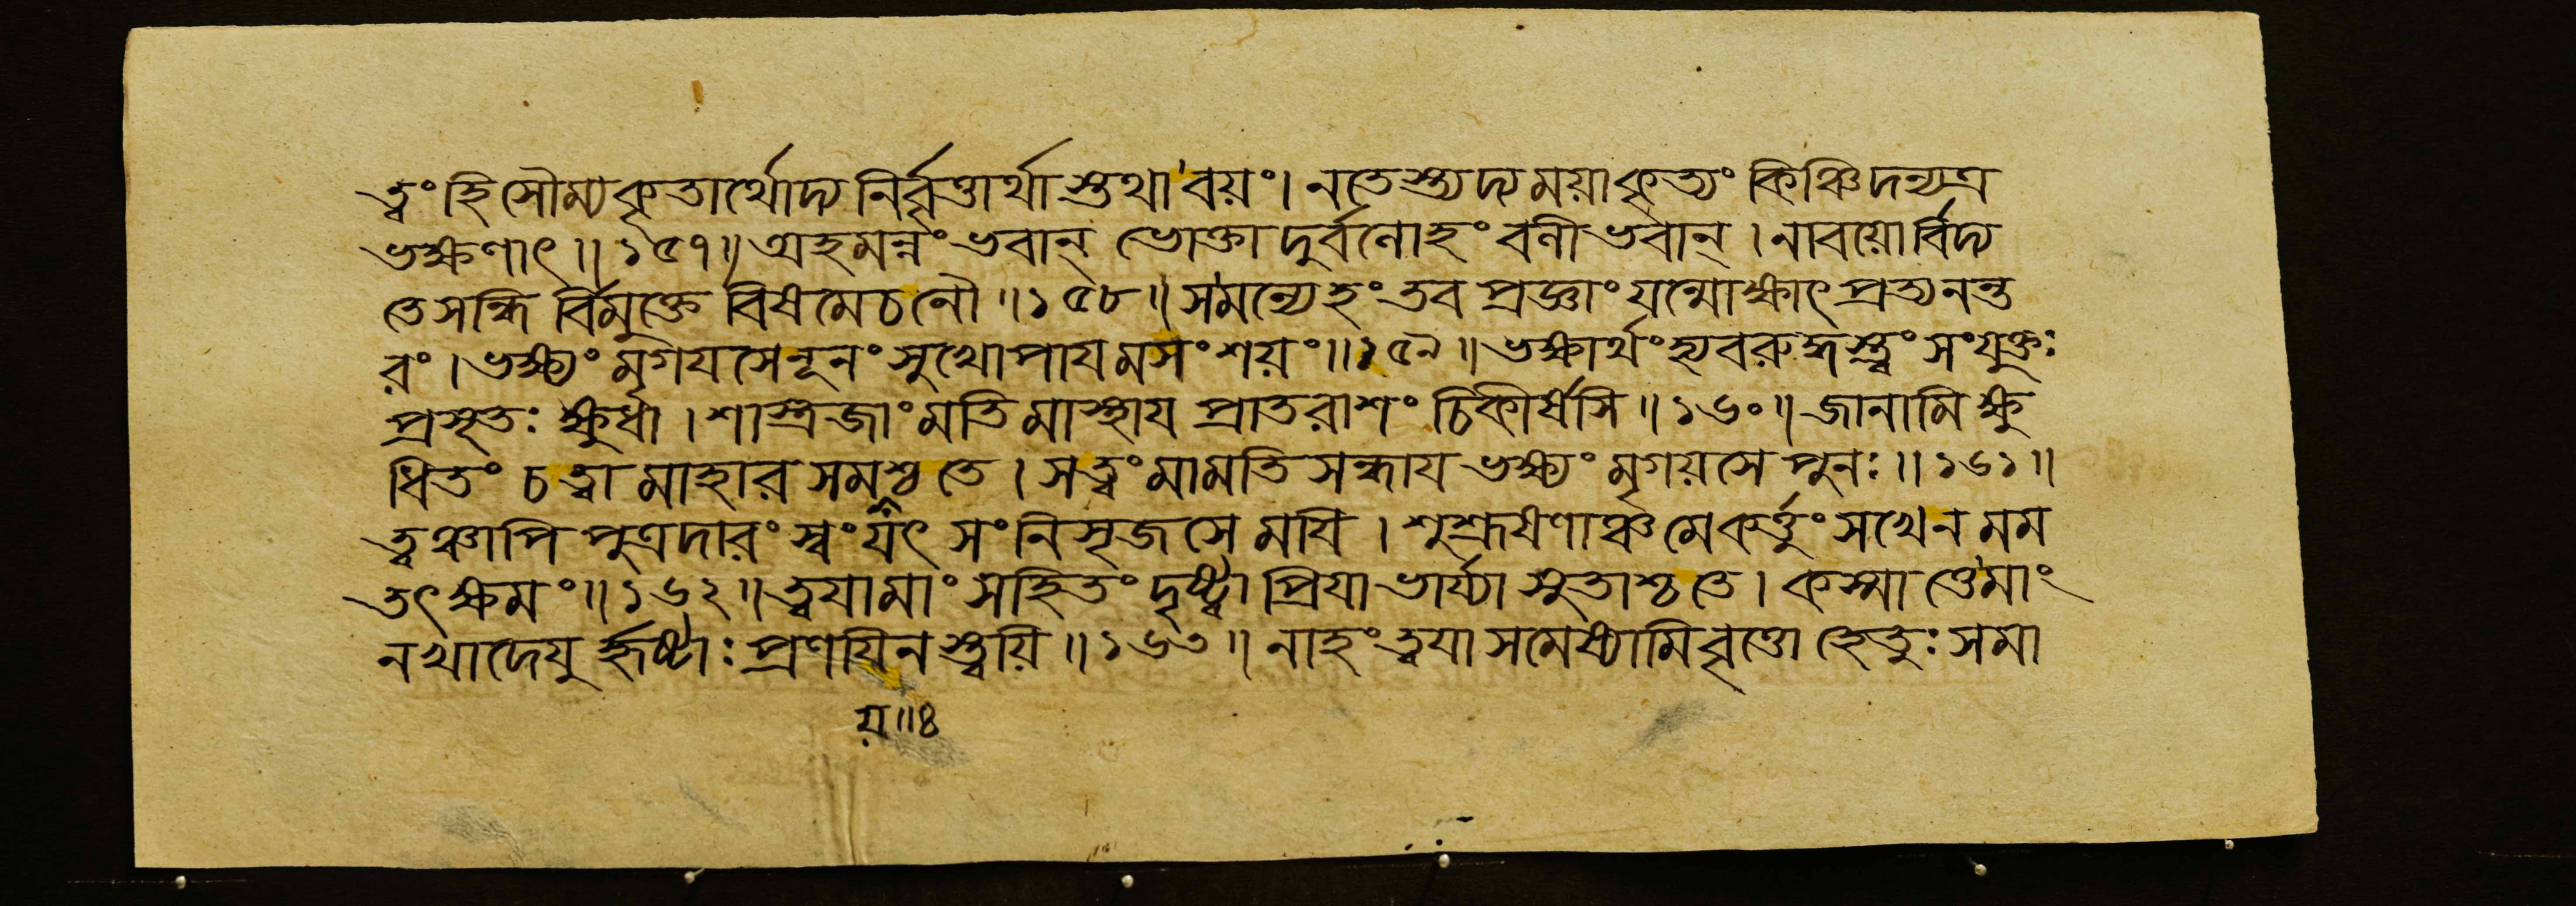 ত্বং হি সৌম্য কৃতার্থোদ্য নির্বৃত্তার্থা স্তথা বয়ং। ন তে স্ত্যদ্য ময়া কৃত্যং কিঞ্চিদন্যত্র
ভক্ষণাৎ॥১৫৭॥ অহমন্নং ভবান্ ভোক্তা দুর্বলোহং বলী ভবান্। নাবয়োর্বিদ্য
তে সন্ধি র্বিমুক্তে বিষমে চ নৌ॥১৫৮॥ স মন্যেহং তব প্রজ্ঞাং যন্মোক্ষাৎ প্রত্যনন্ত
রং। ভক্ষ্যং মৃগযসে নূনং সুখোপাযমসংশয়ং॥১৫৯॥ ভক্ষ্যার্থং হ্যবরুদ্ধস্ত্বং সংযুক্তঃ
প্রসৃতঃ ক্ষুধা। শাস্ত্রজাং মতি মাস্থায প্রাতরাশং চিকীর্ষসি॥১৬০॥ জানামি ক্ষু
ধিতং চ ত্বা মাহার সমশ্চ তে। স ত্বং মামতি সন্ধায ভক্ষ্যং মৃগয়সে পুনঃ॥১৬১॥
ত্বঞ্চাপি পুত্রদারং স্বং যৎ সংনিসৃজসে মযি। শুশ্রূষণাঞ্চ মে কর্ত্তুং সখে ন মম
তৎ ক্ষমং॥১৬২॥ ত্বযা মাং সহিতং দৃষ্ট্বা প্রিযা ভার্য্যা সুতাশ্চ তে। কস্মাত্তে মাং
ন খাদেযু র্হৃষ্টাঃ প্রণযিন স্ত্বয়ি॥১৬৩॥ নাহং ত্বযা সমেষ্যামি বৃত্তো হেতুঃ সমা
য॥৪